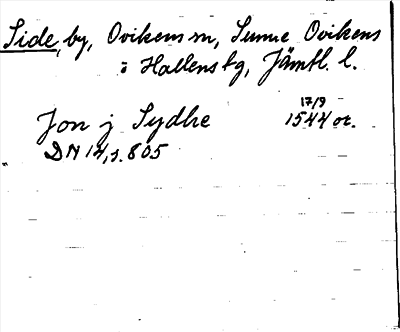 Side, by, Ovikens sn, Sunne Ovikens
o Hallens tg, Jämtl. l.
17/9
Jon j Sydhe 1544 or.
DN 14, s. 805